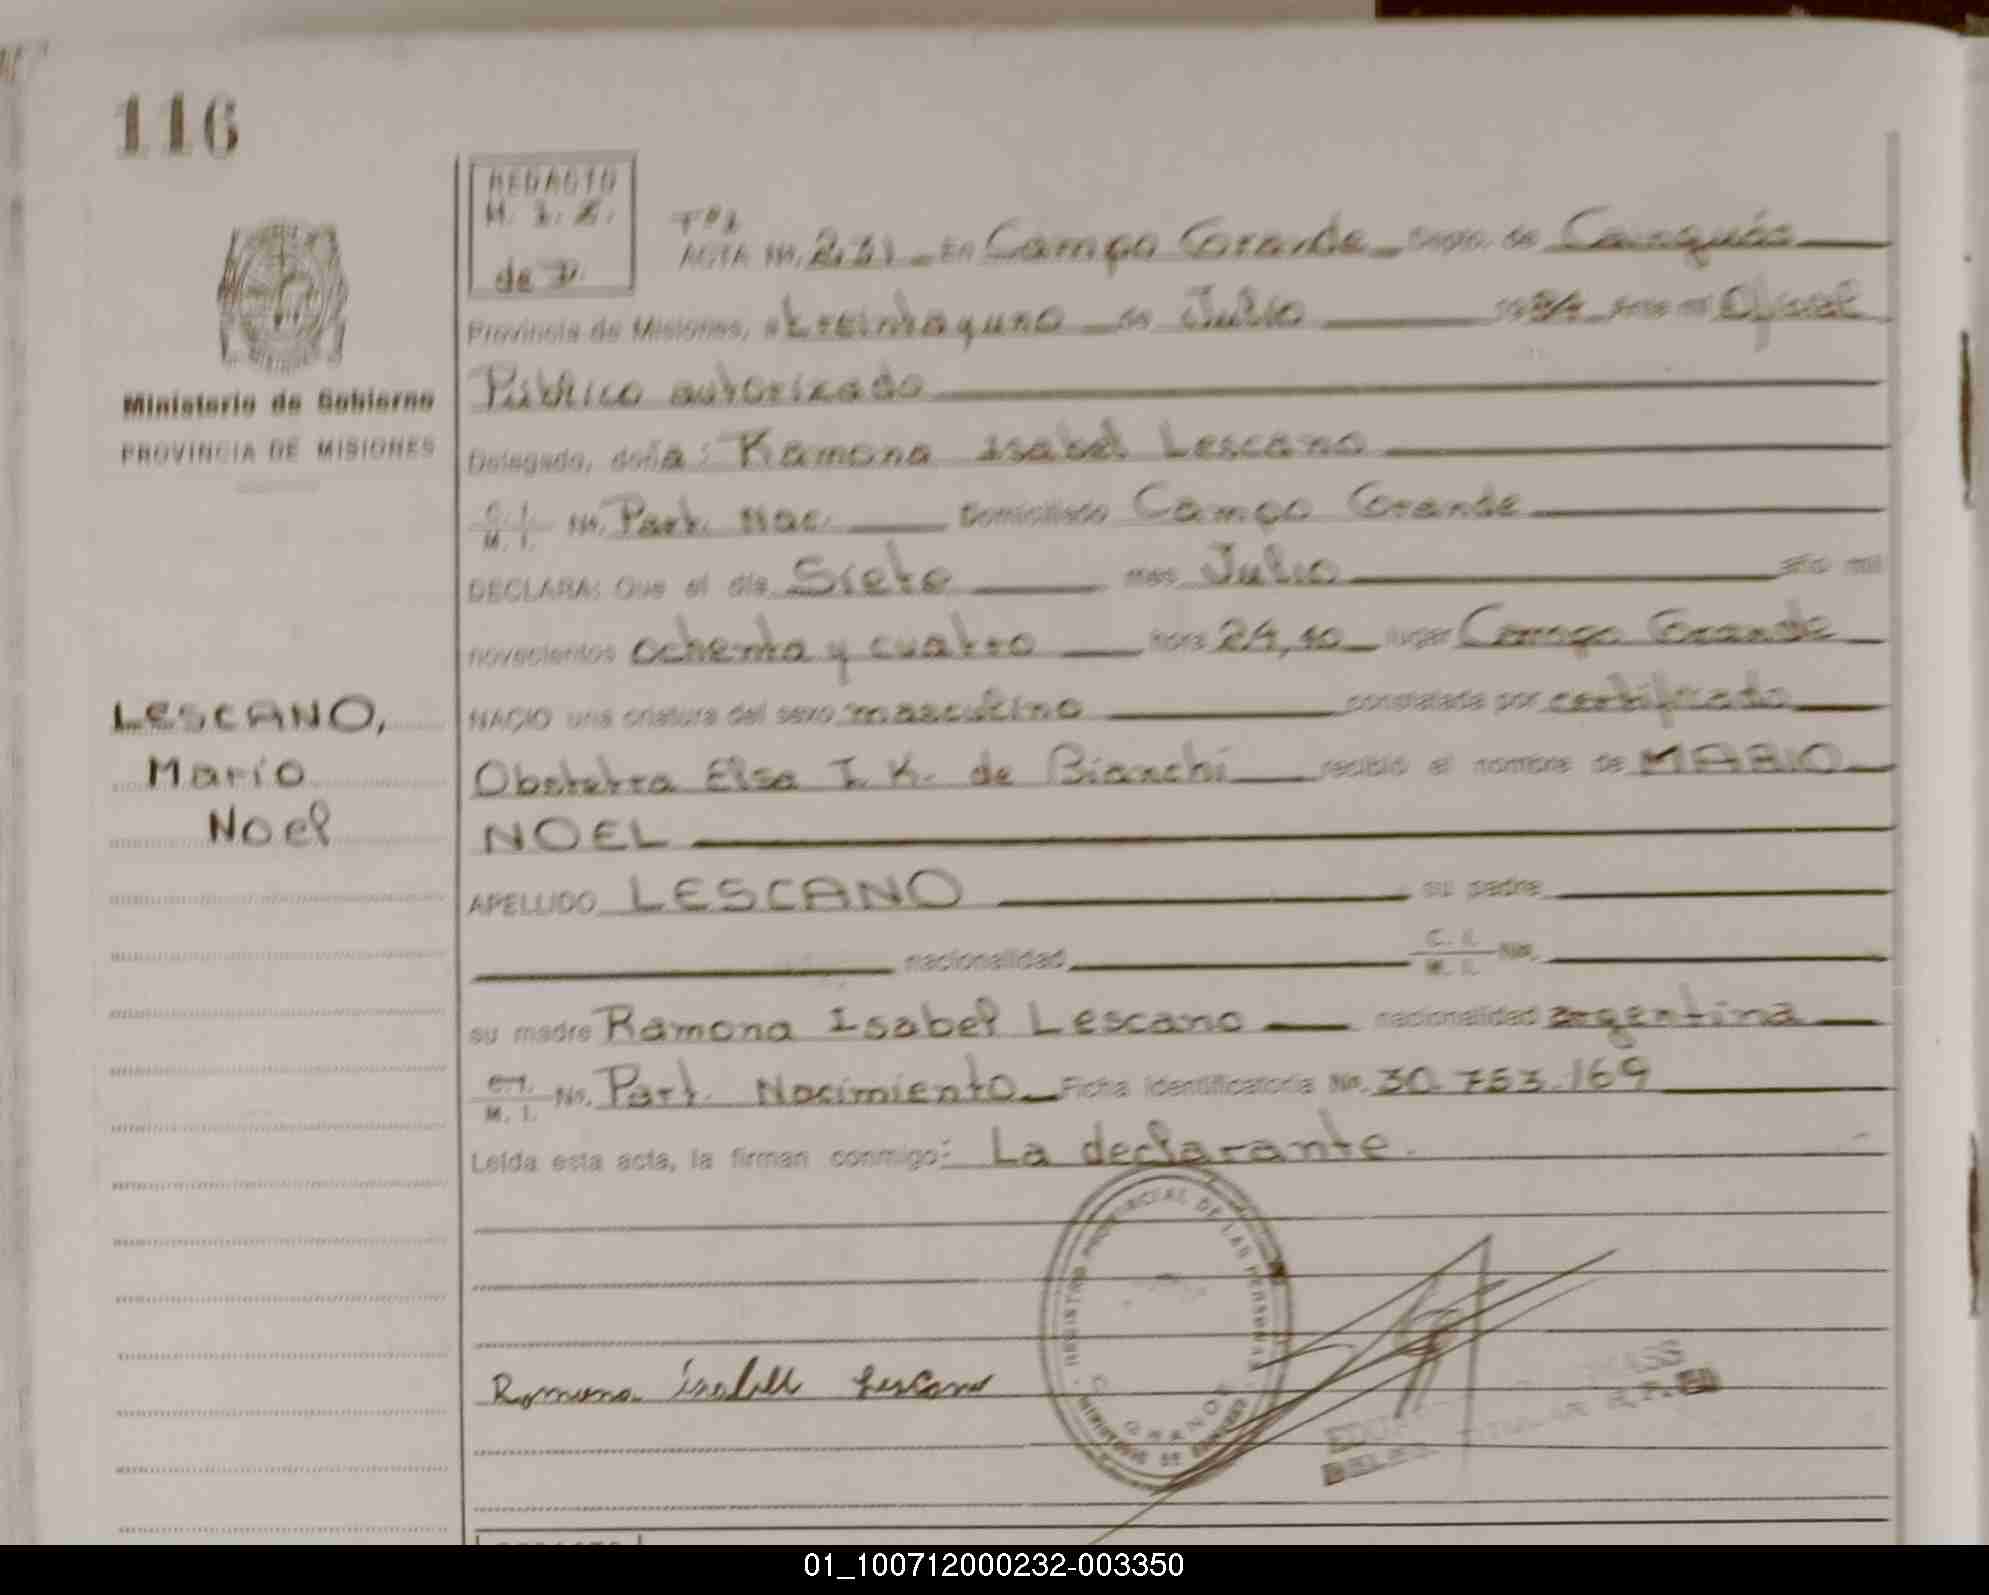 116
REDACTO
M. I. E.
de D.
Tº 1
ACTA Nº. 231 En Campo Grande Dpto. de Cainguás
Provincia de Misiones, a treintayuno de Julio 1984 ante mi Oficial
Público autorizado
Ministerio de Gobierno
PROVINCIA DE MISIONES
Delegado, doña: Ramona Isabel Lescano
C. I.
M. I. Nº. Part. Nac. Domiciliado Campo Grande
DECLARA: Que el día Siete mes Julio año mil
novecientos ochenta y cuatro hora 24,10 lugar Campo Grande
LESCANO,
Mario
Noel
NACIO una criatura del sexo masculino constatada por certificado
Obstetra Elsa I. K. de Bianchi recibió el nombre de MARIO
NOEL
APELLIDO LESCANO su padre
nacionalidad C. I.
M. I. Nº.
su madre Ramona Isabel Lescano nacionalidad argentina
C. I.
M. I. Nº. Part. Nacimiento Ficha identificatoria Nº. 30.753.169
Leída esta acta, la firman conmigo: La declarante.
REGISTRO PROVINCIAL DE LAS PERSONAS
C. GRANDE
MINISTERIO DE GOBIERNO
Ramona Isabel Lescano
TITULAR
01_100712000232-003350